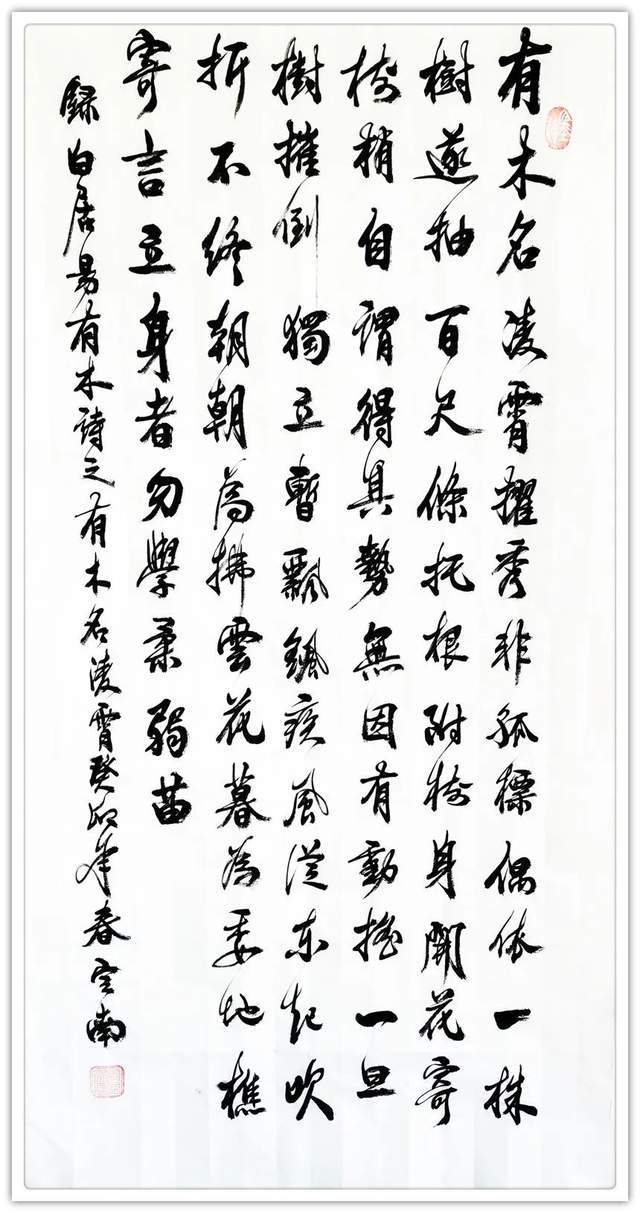 有木名凌霄擢秀非孤標偶依一株
樹遂抽百尺條托根附樹身開花寄
樹梢自謂得其勢無因有動搖一旦
樹摧倒獨立暫飄飖疾風從東起吹
折不終朝朝為拂雲花暮為委地樵
寄言立身者勿學柔弱苗
錄白居易有木詩之有木名凌霄癸卯年春南